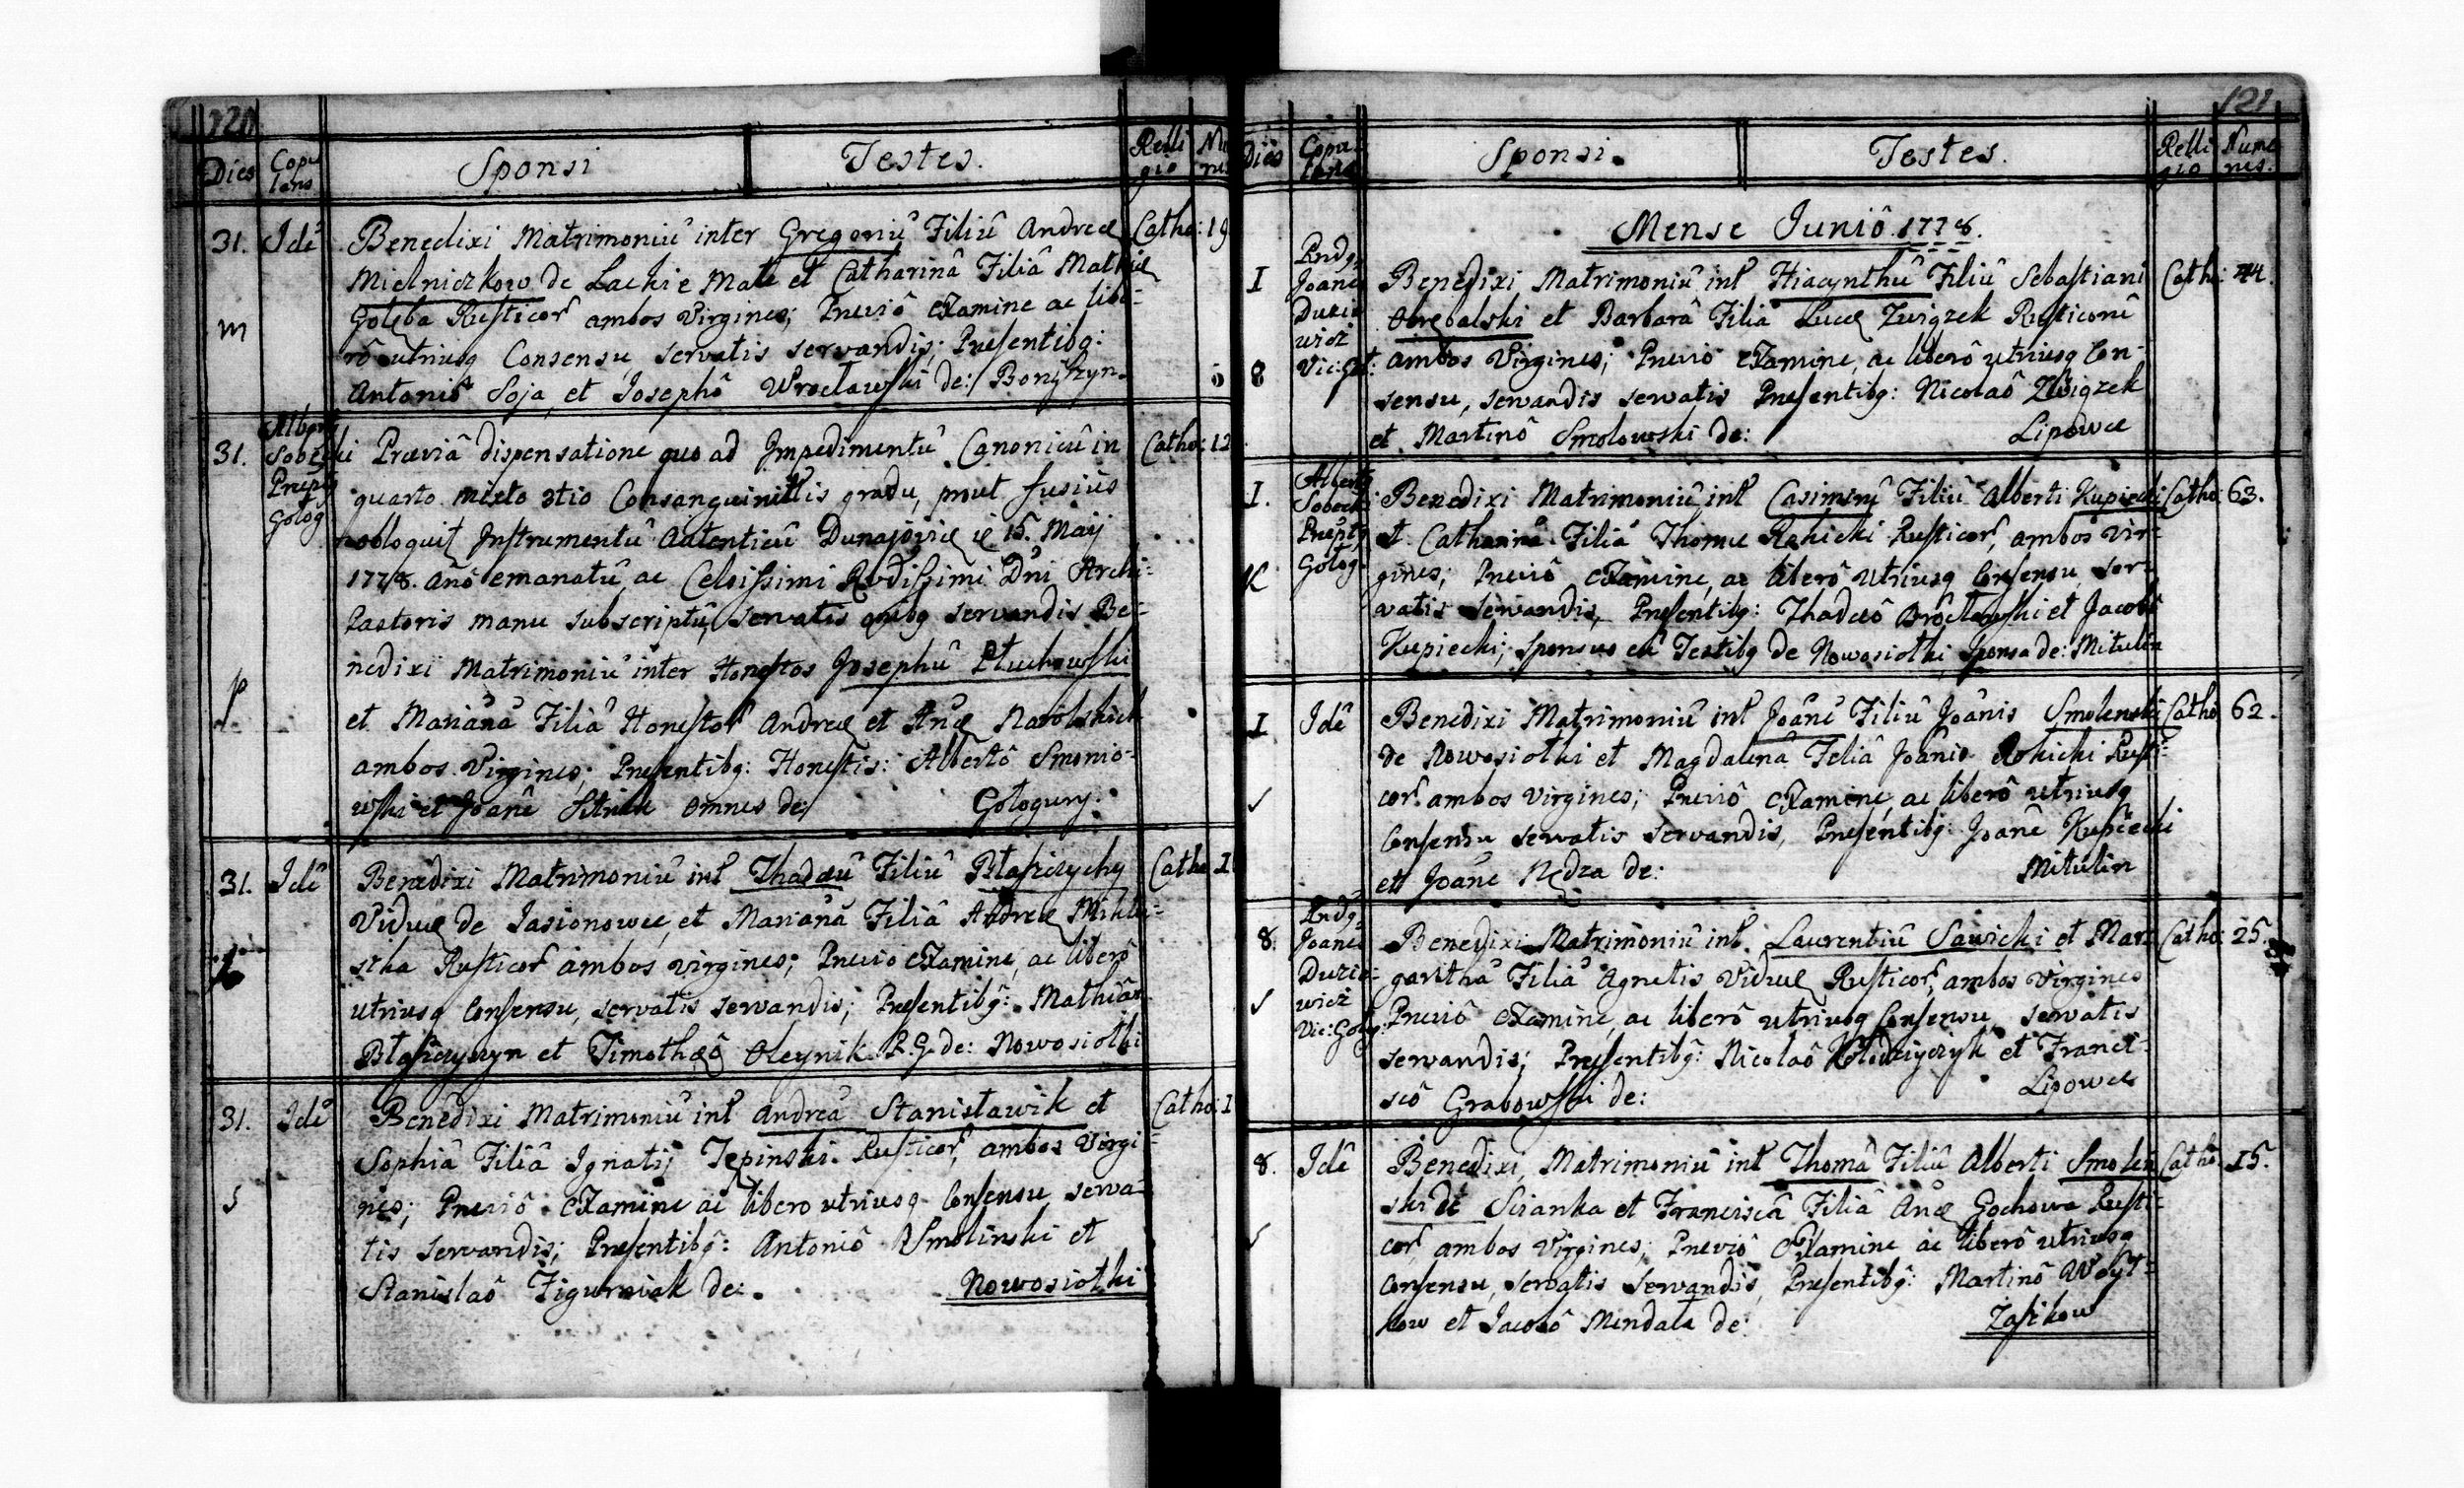 120
Dies Copu Sponsi Testes. Relli Nu
lans gio
31. Idẽ Benedixi Matrimoniũ inter Gregoriũ Filiũ Andreæ Catho: 19
Mielniczkow de Lackie Małe et Catharinâ Filiâ Mathiæ
m Gołęba Rusticor ambos Virgines; Præviô Examine ac libe-
rô utriusq Consensu, servatis servandis; Præsentibq:
Antoniô Soja et Josephô Wrocławski de:
31. Albertq Sobecki Præpq Gołog
Præviâ dispensatione quo ad Impedimentũ Canonicũ in Catho: 12
quarto mixto 3tio Consanguinittis gradu, prout fusius
obloquit Instrumentũ Autenticũ 15. Maij
1778. Anô emanatũ, ac Celsissimi Rvdissimi Dñi Archi-
Pastoris manu subscriptũ, servatis servandis Be-
nedixi Matrimoniũ inter Honestos Josephũ Ptuchowski
p et Mariañâ Filiâ Honestor Andreæ et Añæ
ambos Virgines; Præsentibq: Honestis: Albertô Smonio-
wski et Joanẽ omnes de: Gołogury.
31. Idẽ Benedixi Matrimoniũ int Thadæũ Filiũ Błaszczychy Catho: 1
Viduæ de Jasionowce, et Mariañâ Filiâ Andreæ
Rusticor ambos virgines; Prævio Examine, ac liberô
utriusq Consensu, servatis servandis; Præsentibq: Mathiâ
Błaszczyszyn et Timothæô Oleynik R.G. de: Nowosiołki
31. Idẽ Benedixi Matrimoniũ int Andreâ Stanisławik et Catho: 1
Sophiâ Filiâ Ignatij Tepinski Rusticor, ambos Virgi-
s nes; Præviô Examine ac libero utriusq Consensu serva-
tis servandis; Præsentibq: Antoniô Smolinski et
Stanislaô Figurniak de: Nowosiołki
121
Dies Copu- Sponsi. Testes. Relli Nume
lans gio rus.
Mense Juniô 1778.
I Rndq Joanes Duzie wicz Vic: Goł:
Benedixi Matrimoniũ int Hiacynthũ Filiũ Sebastiani Catho: 44.
Obrębalski et Barbarâ Filiâ Lucæ Zwigzek Rusticorũ
8 ambos Virgines; Præviô Examine, ac liberô utriusq Con-
sensu, servandis servatis Præsentibq: Nicolaô Zwigzek
et Martinô Smolowski de: Lipowce
I. Albertq Sobecki Præptq Gołog:
Benedixi Matrimoniũ int Casimirũ Filiũ Alberti Kupiecki Catho: 63.
et Catharinâ Filiâ Thomæ Rokicki Rusticor, ambos Vir-
K gines; Præviô Examine, ac liberô utriusq Consensu, ser-
vatis servandis, Præsentibq: Thadæô Wrocławski et Jacobô
Kupiecki; Sponsus cũ Testibq de Nowosiołki Sponsa de: Mitulin
I Idẽ Benedixi Matrimoniũ int Joânẽ Filiũ Joânis Smolenski Catho 62.
de Nowosiołki et Magdalenâ Feliâ Joânis Rokicki Rusti-
s cor. ambos virgines; Præviô Examine, ac liberô utriusq
Consensu servatis servandis, Præsentibq: Joanẽ Kupiecki
et Joanẽ Nędza de: Mitulin
8. Rndq Joanes Duzie- wicz Vic: Gołog:
Benedixi Matrimoniũ int. Laurentiũ Sawicki et Mar- Catho: 25.
garithâ Filiâ Agnetis Viduæ Rusticor, ambos Virgines
s Præviô Examine, ac liberô utriusq Consensu, servatis
servandis; Præsentibq: Nicolaô Kołodziyczyk et Francis-
scô Grabowski de: Lipowce
8. Idẽ Benedixi Matrimoniũ int Thomâ Filiũ Alberti Smolen Catho. 15.
ski de Scianka et Franciscâ Filiâ Añæ Gochowa Rusti-
s cor, ambos Virgines; Præviô Examine ac liberô utriusq
Consensu, servatis servandis, Præsentibq: Martinô Woyt-
kow et Jacobô Mendala de: Zaszkow